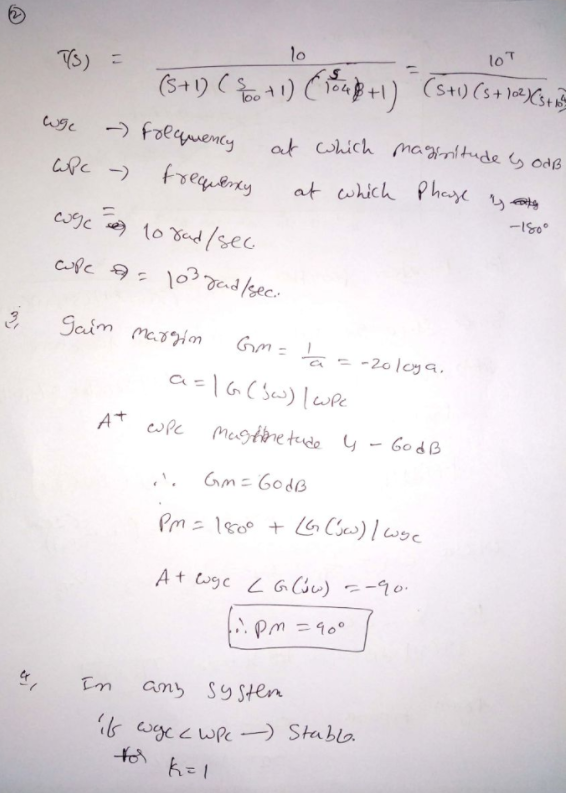 ②
T(s) = 10 / (S+1) (S/100 +1) (S/10^4 +1) = 10^7 / (S+1) (S+10^2) (S+10^4)
wgc → Frequency at which maginitude is 0dB
wpc → frequency at which Phase is -180°
wgc = 10 rad/sec
wpc = 10^3 rad/sec.
3, Gain margin Gm = 1/a = -20loga.
a = |G(jw)|wpc
At wpc magnetude is -60dB
∴ Gm = 60dB
Pm = 180° + ∠G(jw)|wgc
At wgc ∠G(jw) = -90.
∴ PM = 90°
4, In any system
if wgc < wpc → Stable.
for K=1